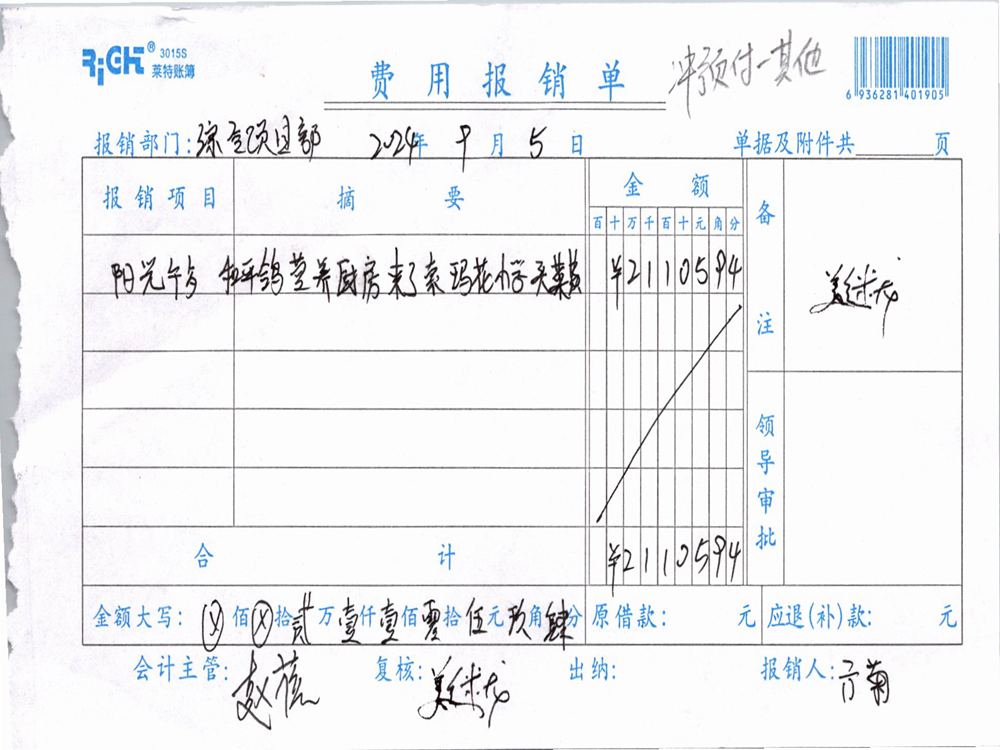 RiGHT® 3015S
莱特账簿
费用报销单
冲预付-其他
6 936281 401905
报销部门:综宣项目部 2024年9月5日
单据及附件共 页
报销项目 摘要 金额 备注
百十万千百十元角分
阳光午 和平鸽营养厨房来了索玛花小学买菜 ¥2110594
领导审批
合计 ¥2110594
金额大写: ⊗佰⊗拾贰万壹仟壹佰零拾伍元玖角肆分 原借款: 元 应退(补)款: 元
会计主管: 赵蓓 复核: 出纳: 报销人: 菊